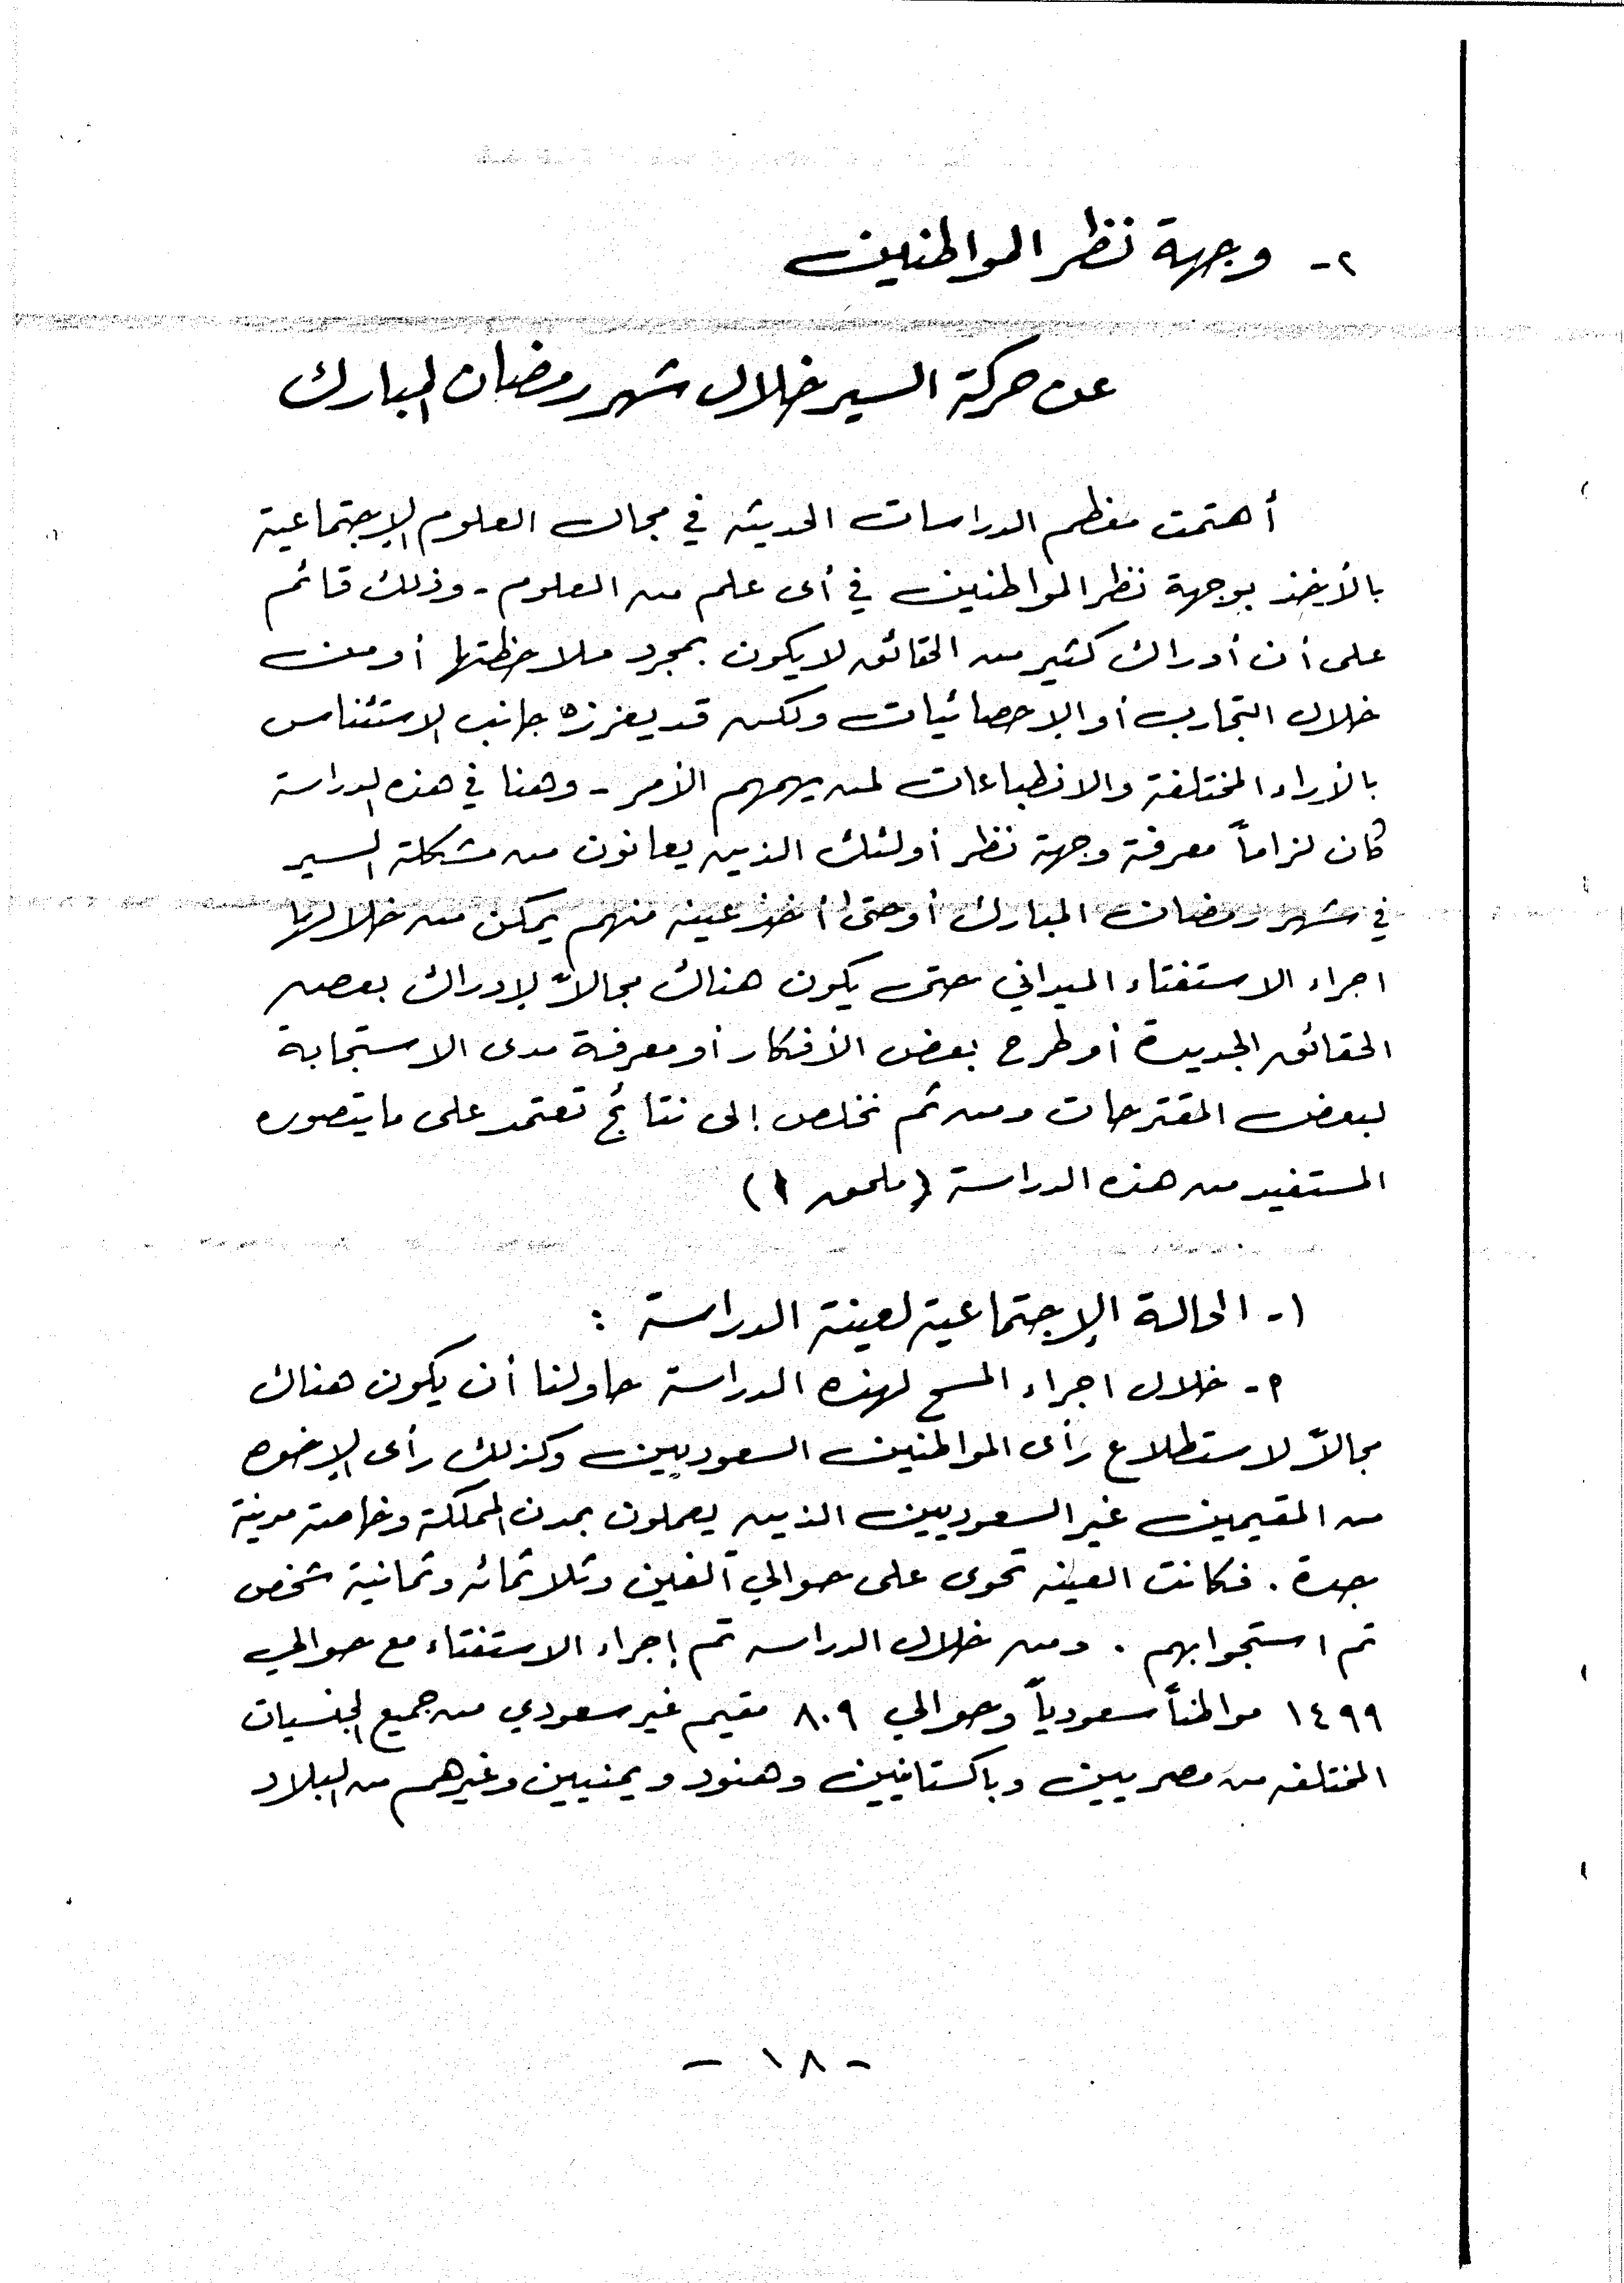 ٢- وجهة نظر المواطنين
عن حركة السير خلال شهر رمضان المبارك
أهتمت معظم الدراسات الحديثه في مجال العلوم الإجتماعية
بالأخذ بوجهة نظر المواطنين في أى علم من العلوم - وذلك قائم
على أن أدراك كثير من الحقائق لا يكون بمجرد ملاحظتها أو من
خلال التجارب أو الإحصائيات ولكن قد يعززه جانب الاستئناس
بالأراء المختلفة والانطباعات لمن يهمهم الأمر - وهنا في هذه الدراسة
كان لزاماً معرفة وجهة نظر أولئك الذين يعانون من مشكلة السير
في شهر رمضان المبارك أو حتى أخذ عينه منهم يمكن من خلالها
اجراء الاستفتاء الميداني حتى يكون هناك مجالاً لإدراك بعض
الحقائق الجديدة أو طرح بعض الأفكار أو معرفة مدى الاستجابة
لبعض المقترحات ومن ثم نخلص إلى نتائج تعتمد على ما يتصوره
المستفيد من هذه الدراسة (ملحق ١)
١- الحالة الإجتماعية لعينة الدراسة :
م- خلال اجراء المسح لهذه الدراسة حاولنا أن يكون هناك
مجالاً لاستطلاع رأى المواطنين السعوديين وكذلك رأى الإخوه
من المقيمين غير السعوديين الذين يعملون بمدن المملكة وخاصة مدينة
جدة . فكانت العينه تحوى على حوالي ألفين وثلاثمائه وثمانية شخص
تم استجوابهم . ومن خلال الدراسه تم إجراء الاستفتاء مع حوالي
١٤٩٩ مواطناً سعودياً وحوالي ٨٠٩ مقيم غير سعودي من جميع الجنسيات
المختلفه من مصريين وباكستانيين وهنود ويمنيين وغيرهم من البلاد
- ١٨ -